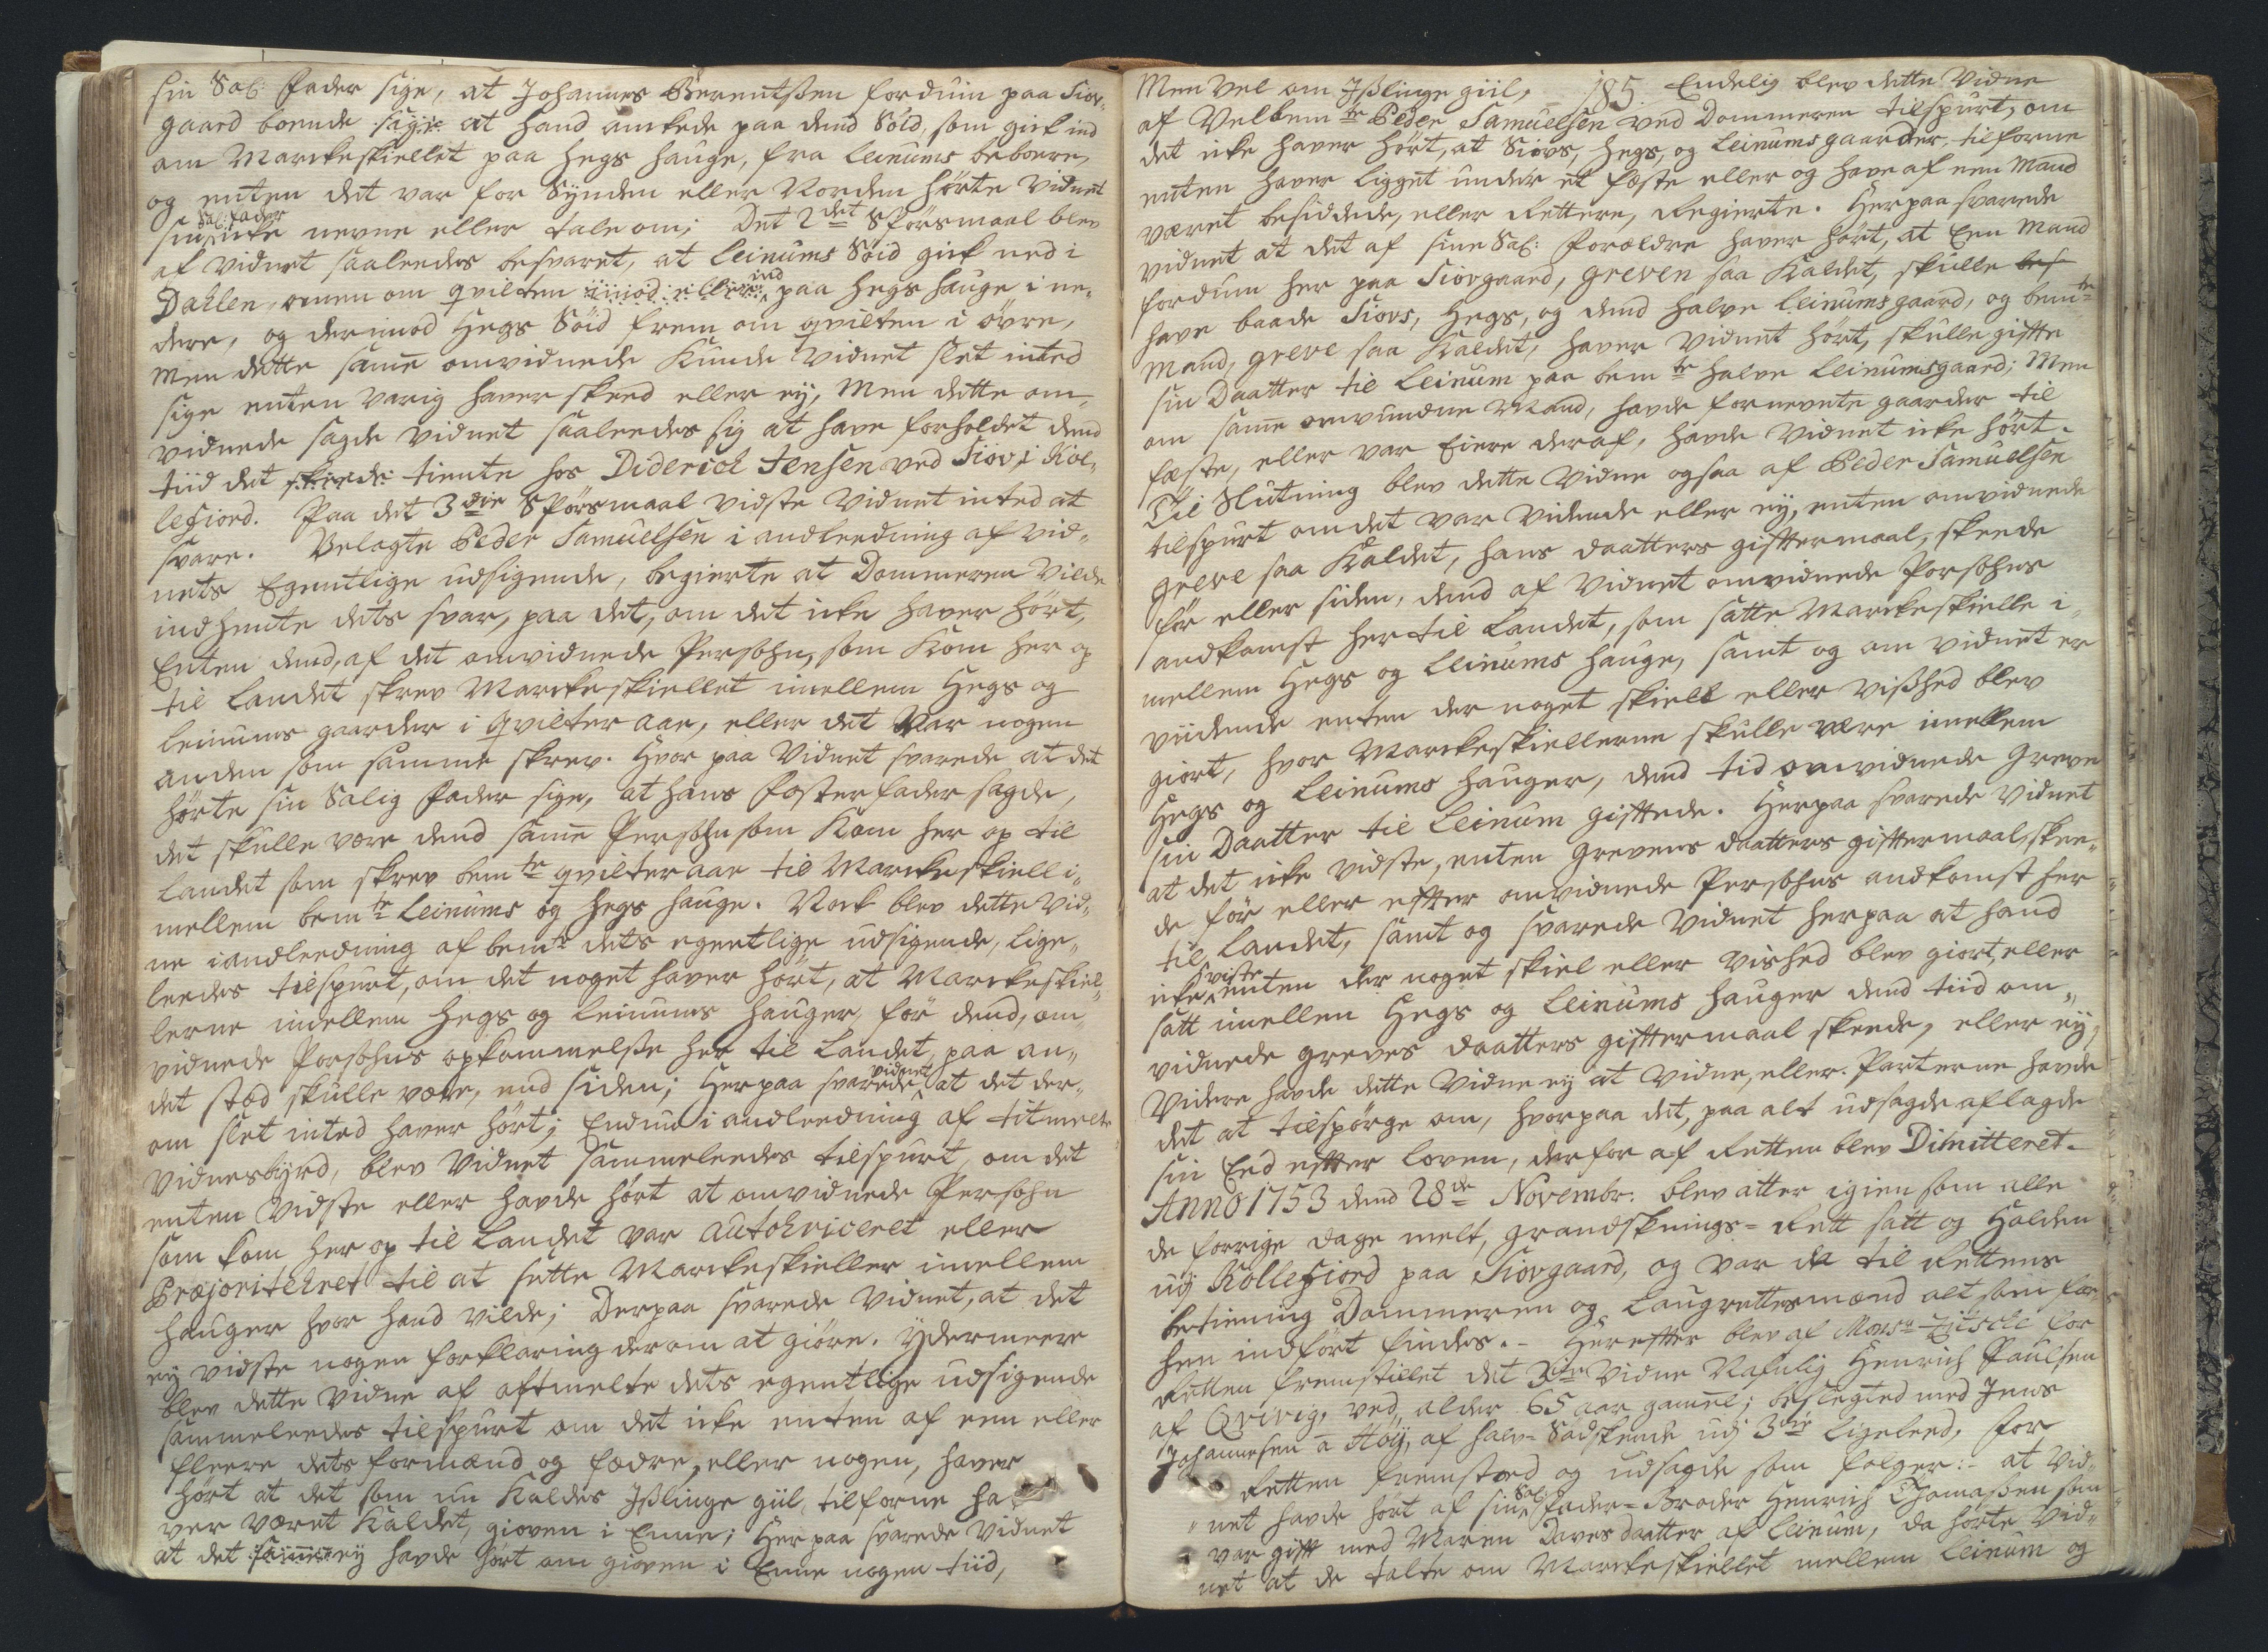 sin Sal: Fader sige, at Johannes Berentßen fordum paa Siov-
gaard boende sagde at hand ankede paa dend Söid, som gik ind
om Marckeskiellet paa Hegs Hauge, fra Leinums beboere,
og enten det var for Synden eller Norden hörte Vidnet
sin Sal: Fader icke nevne eller tale om; Det 2det Spörsmaal blev
af Vidnet saaleedes besvaret, at Leinums Söid gik ned i
Dahlen, omen om qvilten imod eller ind paa Hegs Hauge i ne-
dere, og derimod Hegs Söid frem om qvilten i övre,
Men dette samme omvidnede Kunde Vidnet slet inted
sige enten Varig haver skeed eller ey, Men dette om-
vidnede sagde Vidnet saaleedes sig at have forholdet dend
tiid det skeede tiente hos Diderich Jensen ved Siov i Kol-
lefiord. Paa det 3die Spörsmaal vidste Vidnet inted at
svare. Velagte Peder Samuelsen i andleedning af Vid-
nets Egentlige udsigende, begierte at Dommeren Vilde
indhente dets svar, paa det, om det icke haver hört,
Enten dend, af det omvidnede Persohn, som Kom her op
til Landet skrev Marckeskiellet imellem Hegs og
Leinums gaarder i qvilter aae, eller det Var nogen
anden som samme skrev. Hvor paa Vidnet svarede at det
hörte sin Salig Fader sige, at hans Fosterfader sagde,
det skulle være dend samme Persohn som Kom her op til
Landet som skrev bemte qvilteraae til Marckeskiell i-
mellem bemte Leinums og Hegs Hauge. Nock blev dette Vid-
ne i andleedning af bemte dets egentlige udsigende, lige-
leedes tilspurt, om det noget haver hört, at Marckeskiel-
lerne imellem Hegs og Leinums Hauger, för dend, om-
vidnede Persohns opkommelse her til Landet, paa an-
det stæd skulle være, end siden; Herpaa svarede vidnet at det der-
om slet inted haver hört; Endnu i andleedning af titmelte
Vidnesbyrd, blev Vidnet sammeleedes tilspurt, om det
enten Vidste eller havde hört at omvidnede Persohn
som kom her op til Landet var autohriceret eller
Præjoritehret til at sette Marckeskieller imellem
Hauger hvor hand vilde; Derpaa svarede Vidnet, at det
ey vidste nogen forklaring derom at giöre. Ydermeere
blev dette Vidne af oftmelte dets egentlige udsigende
sammeleedes tilspurt om det icke enten af een eller
fleere dets formænd og fædre, eller nogen, haver
hört at det som nu Kaldes Ißlinge giil, tilforne ha-
ver været Kaldet, gioven i Enne; Herpaa svarede Vidnet
at det samme ey havde hört om gioven i Enne nogen tiid,
Men vel om Ißlinge giil, 185. Endelig blev dette Vidne
af Velbemte Peder Samuelsen ved Dommeren tilspurt, om
det icke haver hört, at Siovs, Hegs, og Leinums gaarder, tilforne
enten haver ligget under et fæste eller og have af een Mand
været besiddede, eller Rettere, Regierte. Herpaa svarede
vidnet at det af sine Sal: Forældre haver hört, at Een Mand
fordum her paa Siovgaard, greven saa Kaldet, skulle bes
have baade Siovs, Hegs, og dend halve Leinumsgaard, og bemte
Mand, greve saa Kaldet, haver Vidnet hört, skulle gifte
sin Daatter til Leinum paa bemte halve Leinumsgaard; Men
om samme omvundne Mand, havde fornevnte gaarder til
fæste, eller var Eiere deraf, havde Vidnet icke hört.
Til Slutning blev dette Vidne ogsaa af Peder Samuelsen
tilspurt om det var Vidende eller ey, enten omvidnede
greve saa Kaldet, hans daatters giftermaal, skeede
för eller siden, dend af Vidnet omvidnede Persohns
andkomst her til Landet, som satte Marckeskielle i-
mellem Hegs og Leinums Hauge, samt og om vidnet er
viidende enten der noget skiell eller vißhed blev
giort, hvor Marckeskiellerne skulle være imellem
Hegs og Leinums Hauger, dend tid omvidnede Greve
sin Daatter til Leinum giftede. Herpaa svarede Vidnet
at det icke vidste, enten Grevens daatters giftermaal, skee-
de för eller efter omvidnede Persohns andkomst her
til Landet, samt og svarede Vidnet herpaa at hand
icke viste enten der noget skiel eller vished blev giort, eller
satt imellem Hegs og Leinums Hauger dend tiid om-
vidnede greves daatters giftermaal skeede, eller ey,
Videre havde dette Vidne ey at vidne, eller Parterne havde
det at tilspörge om, hvorpaa det, paa alt udsagde aflagde
sin Eed efter Loven, derfor af Retten blev Dimitteret.
Anno 1753 dend 28de Novembr: blev atter igien som alle
de forrige dage melt, grandsknings-Rett satt og Holden
udj Kollefiord paa Siovgaard, og var da til Rettens
betiening Dommeren og Laugrettesmænd alt som for
hen indfört findes. - Herefter blev af Monsr Tÿsche for
Retten fremstillet det 3die Vidne Nafnlig Henrich Paulsen
af Qvivig, ved alder 65 aar gamel; beslegted med Jens
Johannesen a Höÿ, af halv-Södskende udj 3die ligeleed, for
Retten fremstoed og udsagde som fölger: - at Vid-
net havde hört af sin Sal: Fader-Broder Henrich Thomaßen som
var gift med Maren Daves daatter af Leinum, da hörte Vid-
net at de talte om Marckeskiellet mellem Leinum og